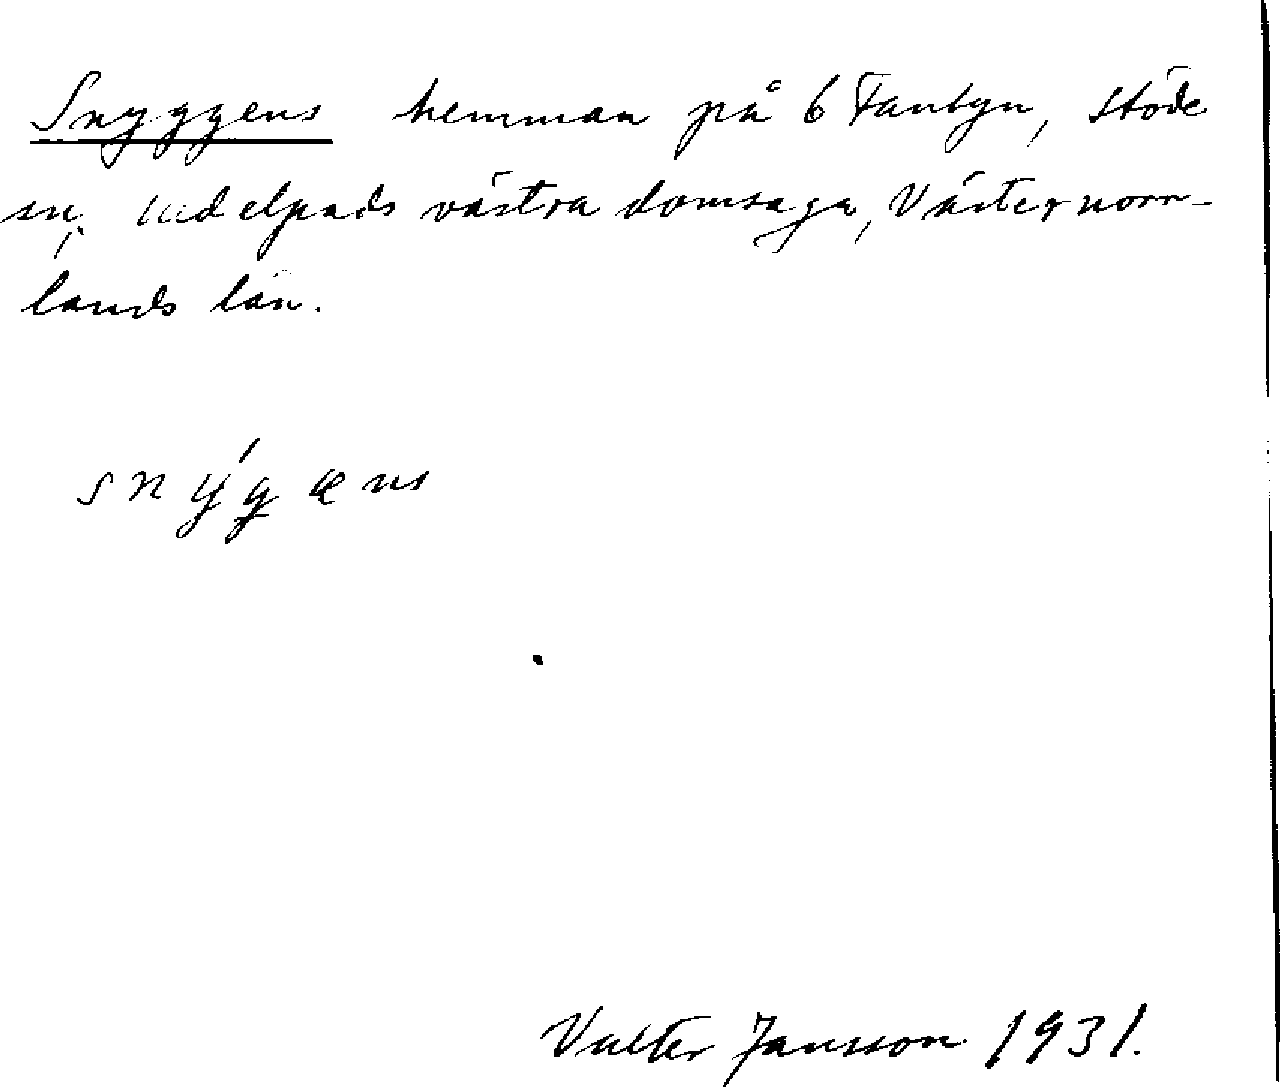 Snyggens hemman på 6 Fanbyn, Stöde
sn, Medelpads västra domsaga, Västernorr-
lands län.
snýgens
Valter Jansson 1931.